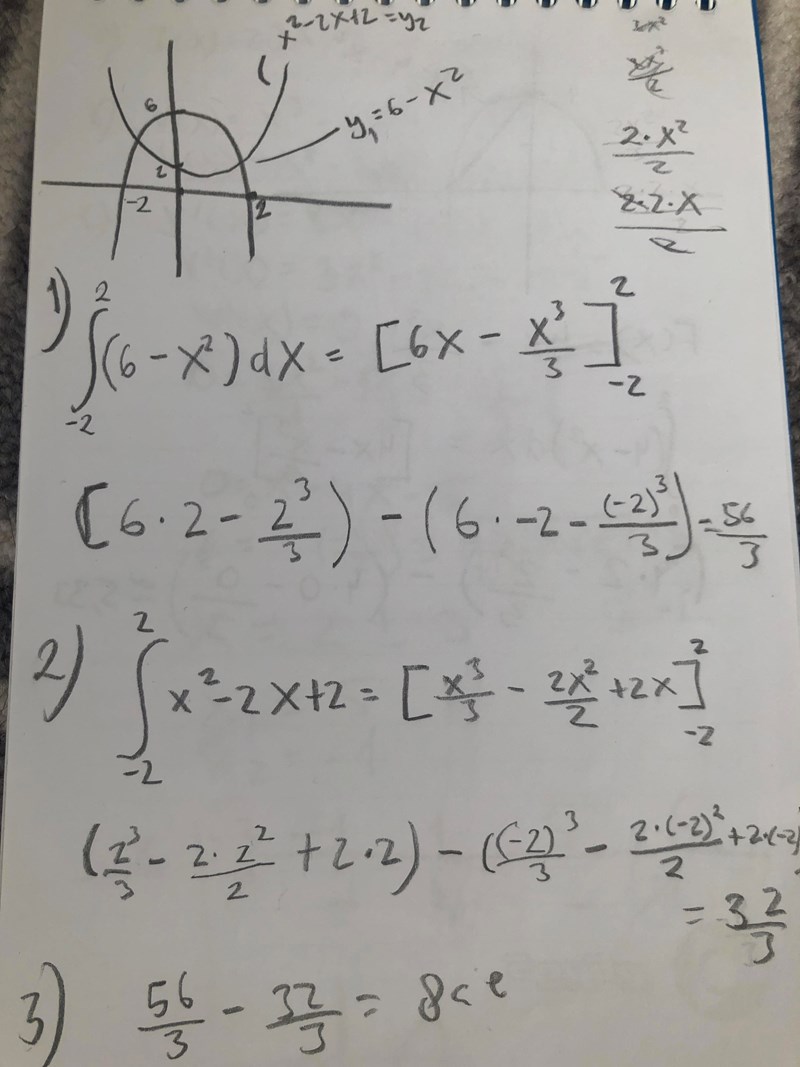 x²-2x+2 = y₂
y₁ = 6 - x²
6
2
-2
2
2·x²/2
1) ∫₋₂² (6 - x²) dx = [6x - x³/3]₋₂²
[6·2 - 2³/3) - (6·-2 - (-2)³/3) = 56/3
2) ∫₋₂² x²-2x+2 = [x³/3 - 2x²/2 + 2x]₋₂²
(2³/3 - 2·2²/2 + 2·2) - ((-2)³/3 - 2·(-2)²/2 + 2·(-2)
= 32/3
3) 56/3 - 32/3 = 8